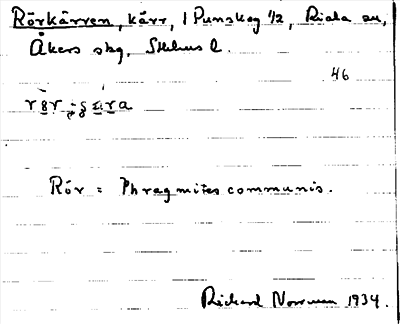 Rörkärren, kärr, 1 Punskog 1/2, Riala sn,
Åkers skg, Sthlms l.
46
Rör = Phragmites communis.
Rickard Norrman 1934.